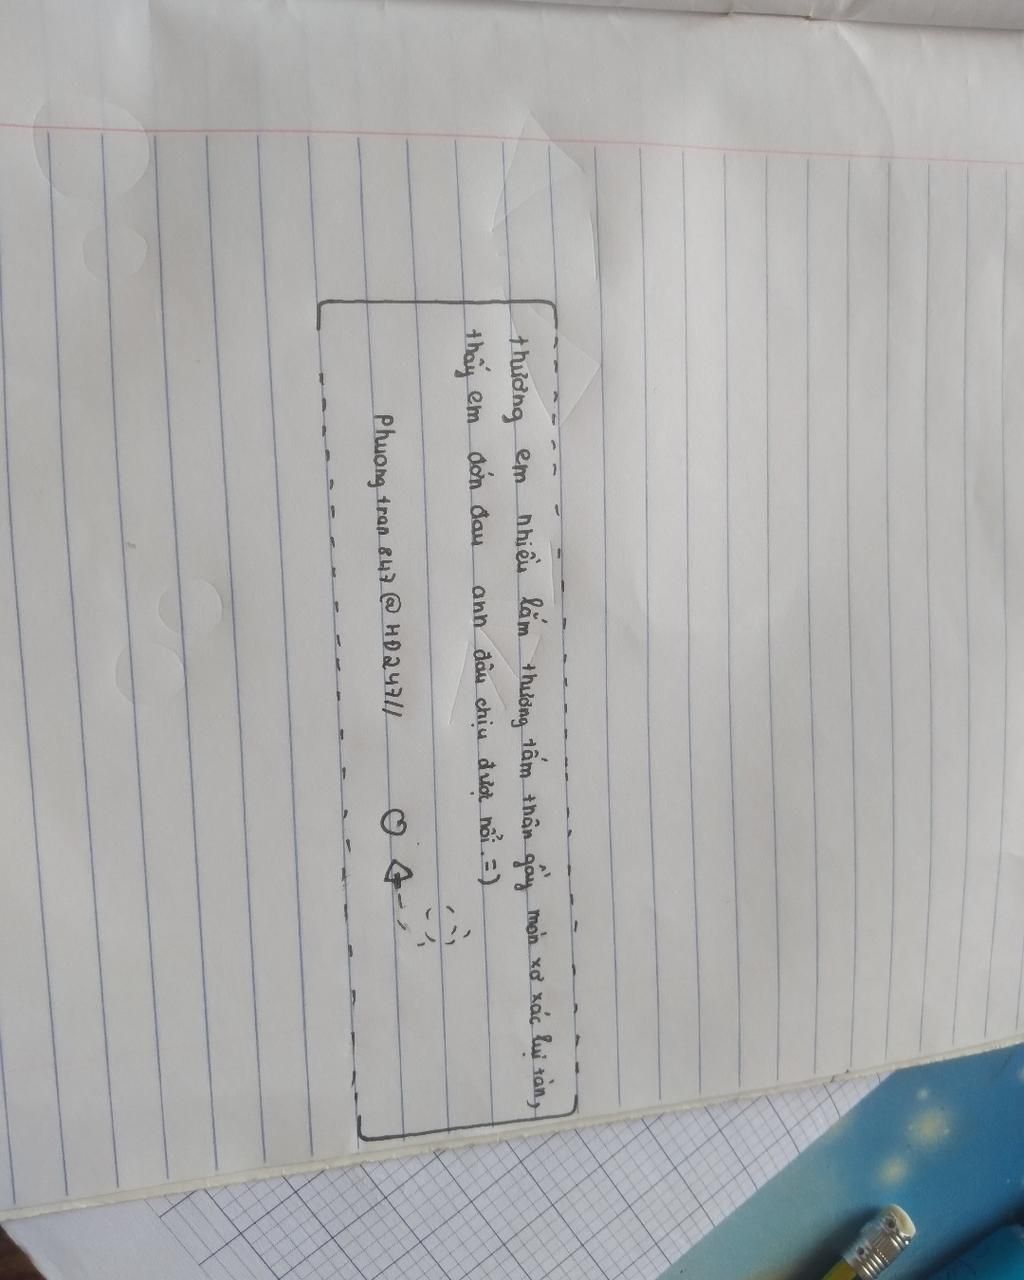 thương em nhiều lắm thương tấm thân gầy mòn xơ xác lụi tàn,
thấy em đớn đau anh đâu chịu được nổi. =)
Phuongtran847@HD247//